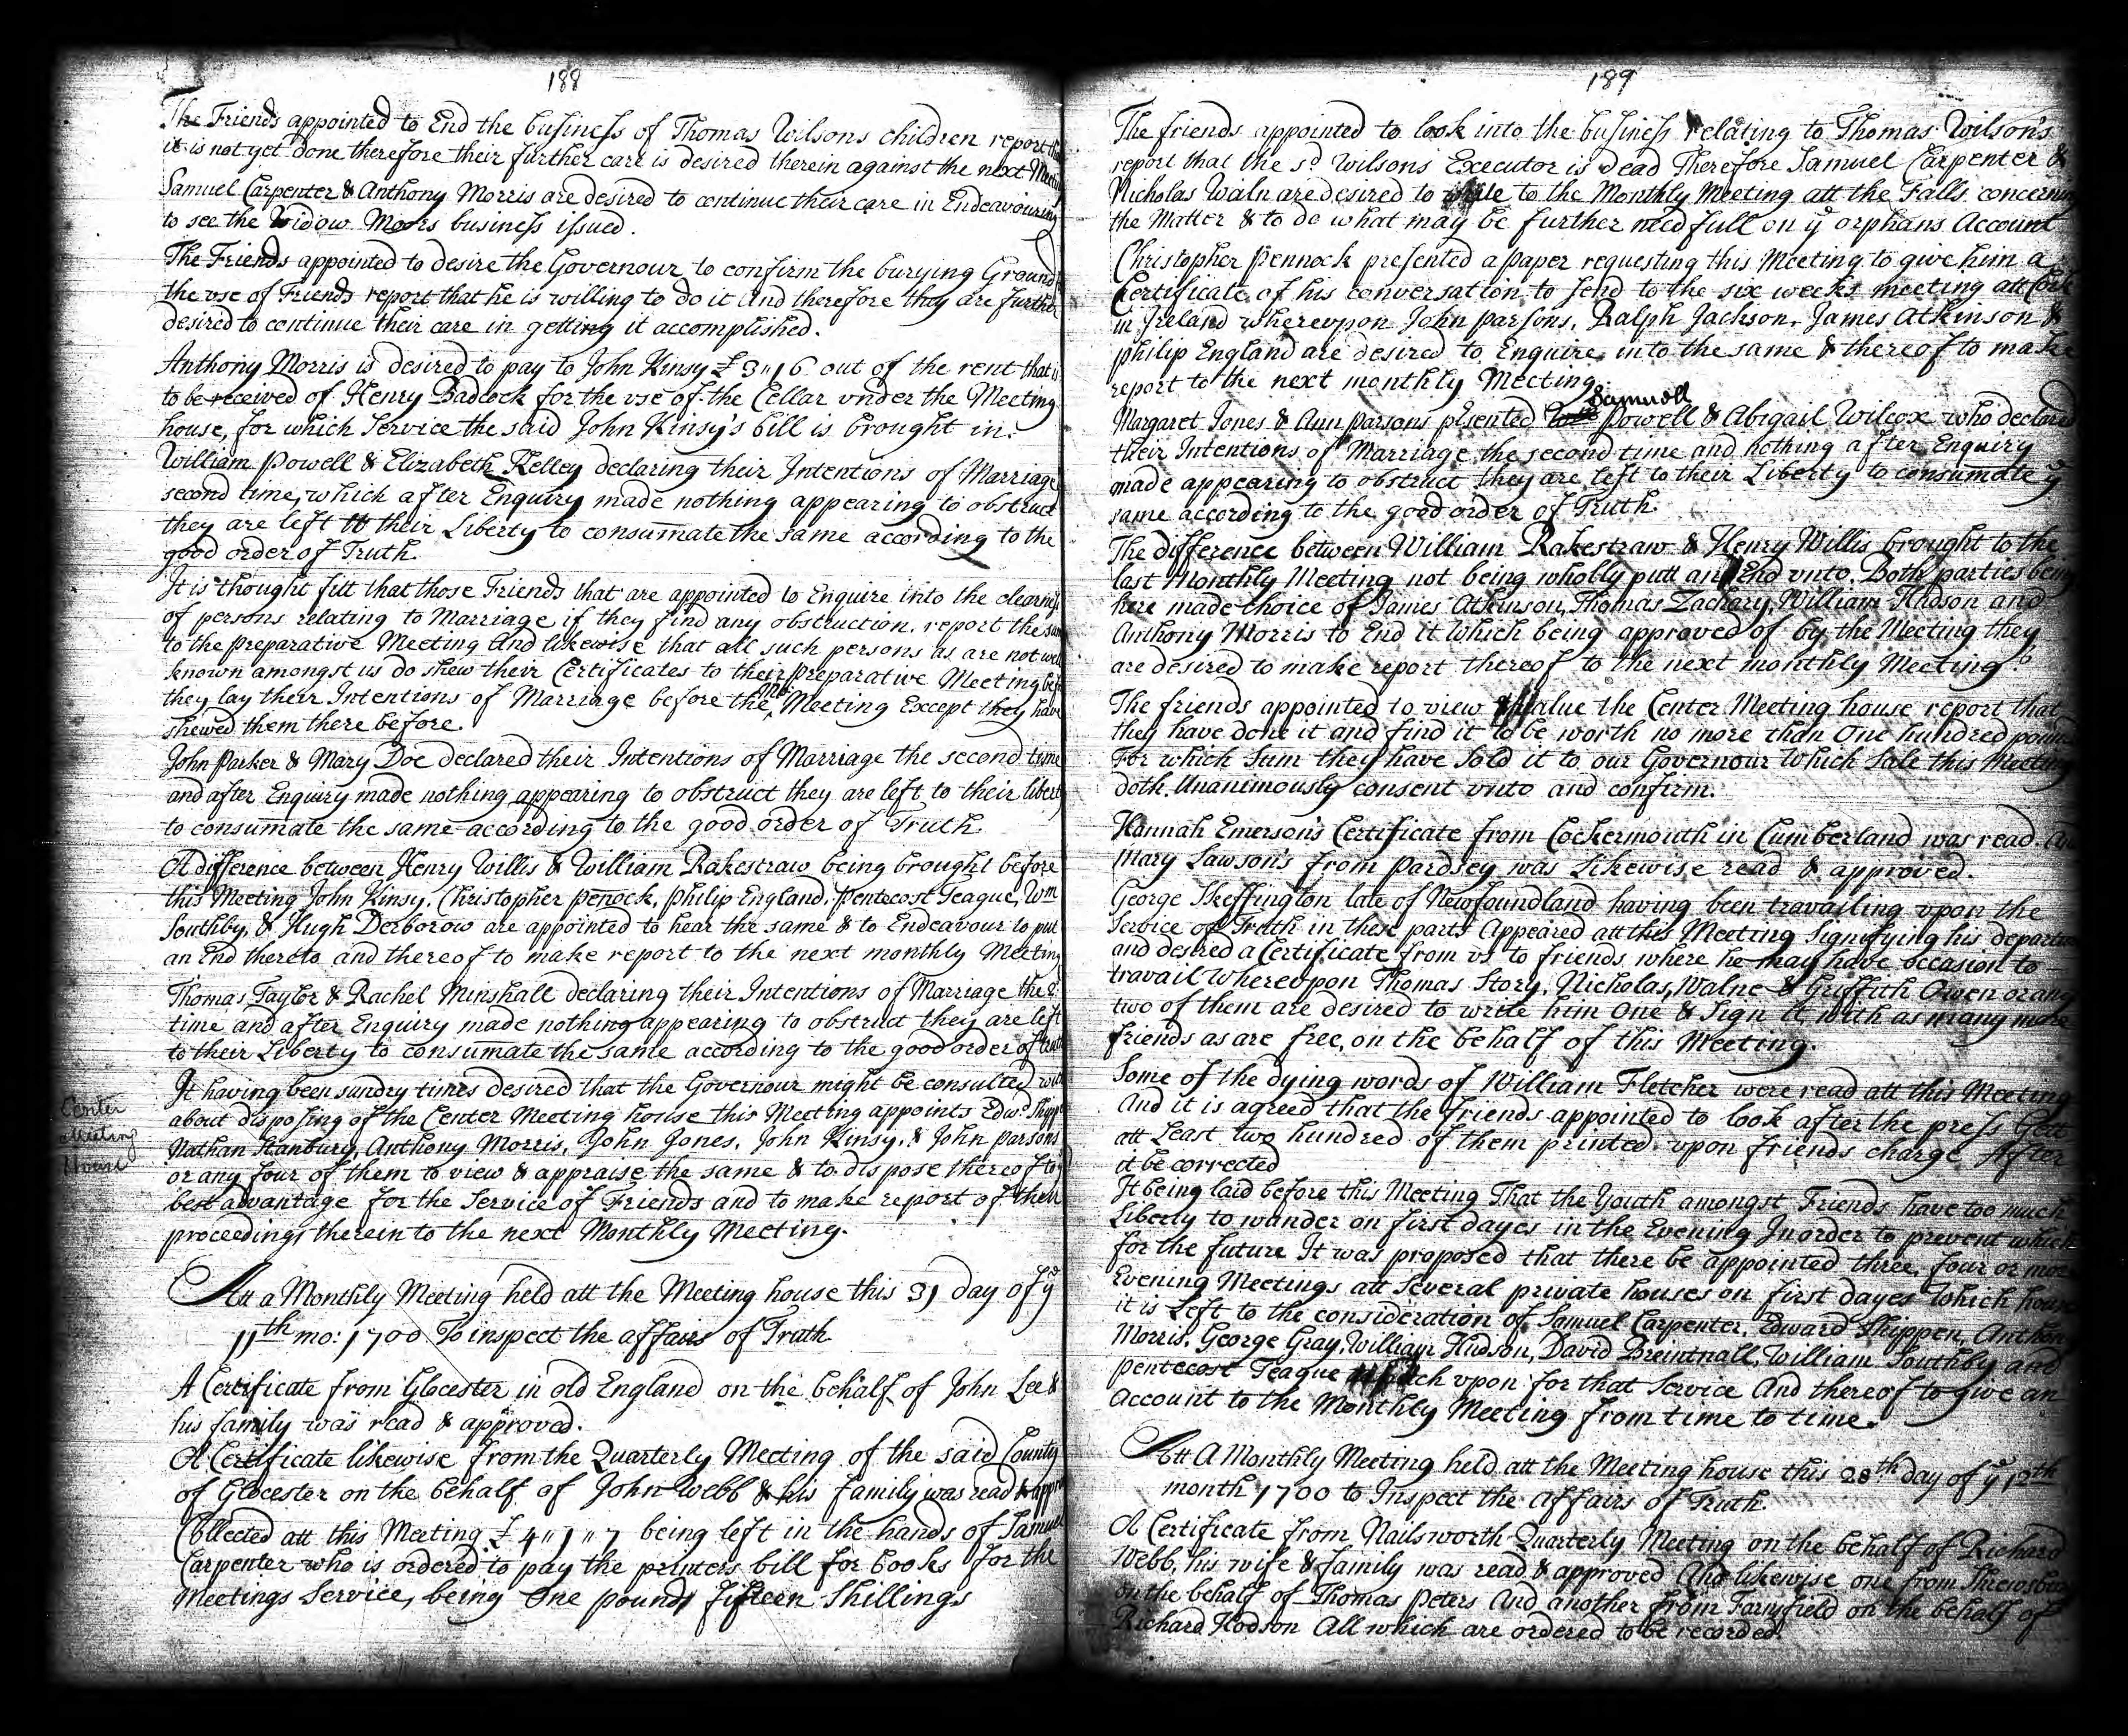 188
The Friends appointed to End the business of Thomas Wilsons children report that
it is not yet done therefore their further care is desired therein against the next Meeting
Samuel Carpenter & Anthony Morris are desired to continue their care in Endeavouring
to see the Widow Moors business issued.
The Friends appointed to desire the Governour to confirm the burying Ground
the use of Friends report that he is willing to do it And therefore they are further
desired to continue their care in getting it accomplished.
Anthony Morris is desired to pay to John Kinsy £3"16 out of the rent that is
to be received of Henry Badcock for the vse of the Cellar vnder the Meeting
house, for which Service the said John Kinsy's bill is brought in.
William Powell & Elizabeth Kelley declaring their Intentions of Marriage
second time, which after Enquiry made nothing appearing to obstruct
they are left to their Liberty to consumate the same according to the
good order of Truth
It is thought fitt that those Friends that are appointed to Enquire into the clearness
of persons relating to Marriage if they find any obstruction, report the same
to the preparative Meeting And likewise that all such persons as are not well
known amongst us do shew their Certificates to their Preparative Meeting before
they lay their Intentions of Marriage before the mo: Meeting Except they have
shewed them there before.
John Parker & Mary Doe declared their Intentions of Marriage the second time
and after Enquiry made nothing appearing to obstruct they are left to their liberty
to consumate the same according to the good order of Truth.
A difference between Henry Willis & William Rakestraw being brought before
this Meeting John Kinsy, Christopher Penock, Philip England, Pentecost Teague, Wm
Southby, & Hugh Derborow are appointed to hear the same & to Endeavour to put
an End thereto and thereof to make report to the next monthly Meeting
Thomas Taylor & Rachel Minshall declaring their Intentions of Marriage the 2d
time and after Enquiry made nothing appearing to obstruct they are left
to their Liberty to consumate the same according to the good order of truth
It having been sundry times desired that the Governour might be consulted with
Center
Meeting
House
about disposing of the Center Meeting house this Meeting appoints Edwd Shippen
Nathan Stanbury, Anthony Morris, John Jones, John Kinsy, & John parsons
or any four of them to view & appraise the same & to dispose thereof to
best advantage for the Service of Friends and to make report of their
proceedings therein to the next Monthly Meeting.
Att a Monthly Meeting held att the Meeting house this 31 day of ye
11th mo: 1700 To inspect the affairs of Truth
A Certificate from Glocester in old England on the behalf of John Lee &
his family was read & approved.
A Certificate likewise from the Quarterly Meeting of the said County
of Glocester on the behalf of John Webb & his family was read & approv
Collected att this Meeting £4"1"7 being left in the hands of Samuel
Carpenter who is ordered to pay the printers bill for books for the
Meetings Service, being One pound, fifteen Shillings
189
The friends appointed to look into the business relating to Thomas Wilson's
report that the sd Wilsons Executor is dead Therefore Samuel Carpenter &
Nicholas Waln are desired to write to the Monthly Meeting att the Falls concerning
the Matter & to do what may be further needfull on ye orphans Account
Christopher Pennock presented a paper requesting this Meeting to give him a
Certificate of his conversation to send to the six weeks meeting att Cork
in Ireland whereupon John parsons, Ralph Jackson, James Atkinson &
philip England are desired to Enquire into the same & thereof to make
report to the next monthly Meeting
Margaret Jones & Ann Parsons presented Samuell Powell & Abigail Wilcox who declared
their Intentions of Marriage the second time and nothing after Enquiry
made appearing to obstruct they are left to their Liberty to consumate ye
same according to the good order of Truth.
The difference between William Rakestraw & Henry Willis brought to the
last Monthly Meeting not being wholly putt an End vnto. Both parties being
here made choice of James Atkinson, Thomas Zachary, William Hudson and
Anthony Morris to End it Which being approved of by the Meeting they
are desired to make report thereof to the next monthly Meeting
The friends appointed to view & value the Center Meeting house report that
they have done it and find it to be worth no more than One hundred pounds
For which Sum they have Sold it to our Governour Which Sale this Meeting
doth Unanimously consent vnto and confirm.
Hannah Emerson's Certificate from Cockermouth in Cumberland was read And
Mary Lawson's from Pardsey was Likewise read & approved.
George Skeffington late of Newfoundland having been travailing vpon the
Service of Truth in these parts Appeared att this Meeting Signifying his departure
and desired a Certificate from us to friends where he may have occasion to
travail Whereupon Thomas Story, Nicholas Walne & Griffith Owen or any
two of them are desired to write him One & Sign it with as many more
friends as are free, on the behalf of this Meeting.
Some of the dying words of William Fletcher were read att this Meeting
And it is agreed that the friends appointed to look after the press Gett
att Least two hundred of them printed vpon friends charge After
it be corrected
It being laid before this Meeting That the Youth amongst Friends have too much
Liberty to wander on first dayes in the Evening In order to prevent which
for the future It was proposed that there be appointed three, four or more
Evening Meetings att Several private houses on first dayes Which houses
it is Left to the consideration of Samuel Carpenter, Edward Shippen, Anthony
Morris, George Gray, William Hudson, David Breintnall, William Southby and
pentecost Teague to pitch vpon for that Service And thereof to give an
Account to the Monthly Meeting from time to time.
Att A Monthly Meeting held att the Meeting house this 28th day of ye 12th
month 1700 to Inspect the affairs of Truth.
A Certificate from Nailsworth Quarterly Meeting on the behalf of Richard
Webb, his wife & family was read & approved And likewise one from Shrewsbury
on the behalf of Thomas Peters And another from Farryfield on the behalf of
Richard Hodson All which are ordered to be recorded.